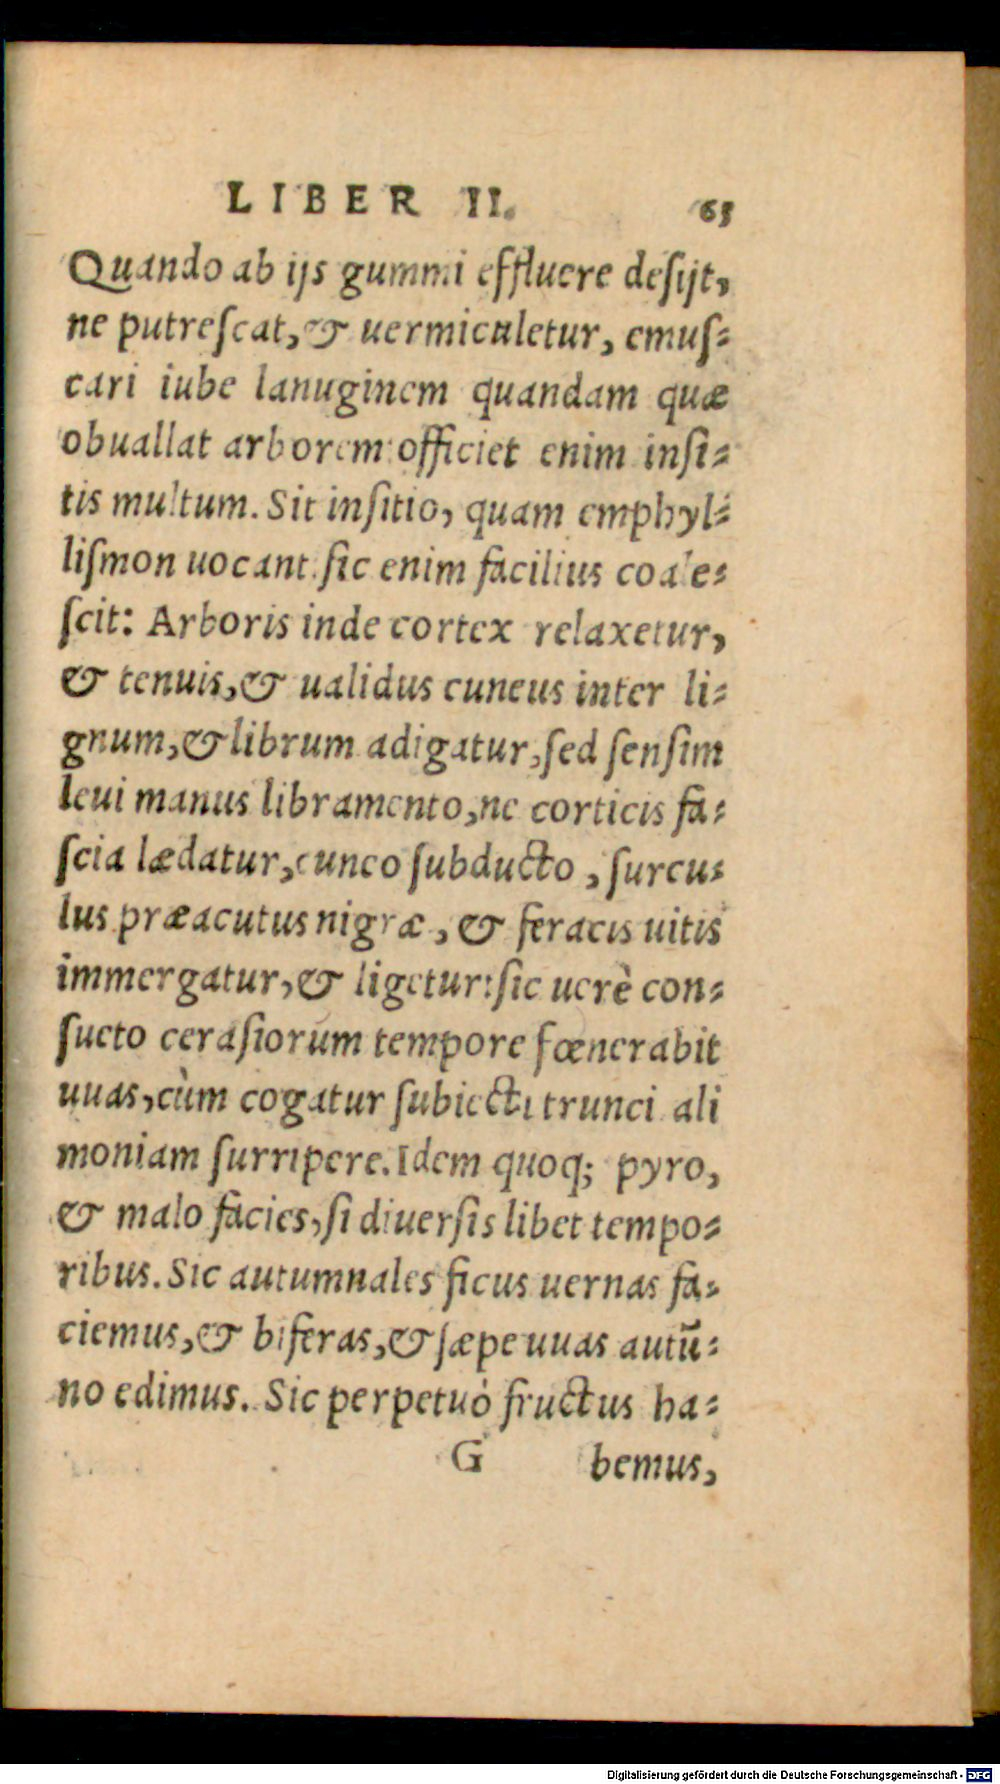 LIBER II. 65
Quando ab ijs gummi effluere desijt,
ne putreſcat, & uermiculetur, emuſ-
cari iube lanuginem quandam quæ
obuallat arborem: officiet enim inſi-
tis multum. Sit inſitio, quam emphyl-
liſmon uocant. ſic enim facilius coale-
ſcit: Arboris inde cortex relaxetur,
& tenuis, & ualidus cuneus inter li-
gnum, & librum adigatur, ſed ſenſim
leui manus libramento, ne corticis fa-
ſcia lædatur, cuneo ſubducto, ſurcu-
lus præacutus nigræ, & feracis uitis
immergatur, & ligetur: ſic uerè con-
ſueto ceraſiorum tempore fœnerabit
uuas, cùm cogatur ſubiecti trunci ali
moniam ſurripere. Idem quoq; pyro,
& malo facies, ſi diuerſis libet tempo-
ribus. Sic autumnales ficus uernas fa-
ciemus, & biferas, & ſæpe uuas autũ-
no edimus. Sic perpetuò fructus ha-
G bemus,
Digitalisierung gefördert durch die Deutsche Forschungsgemeinschaft - DFG